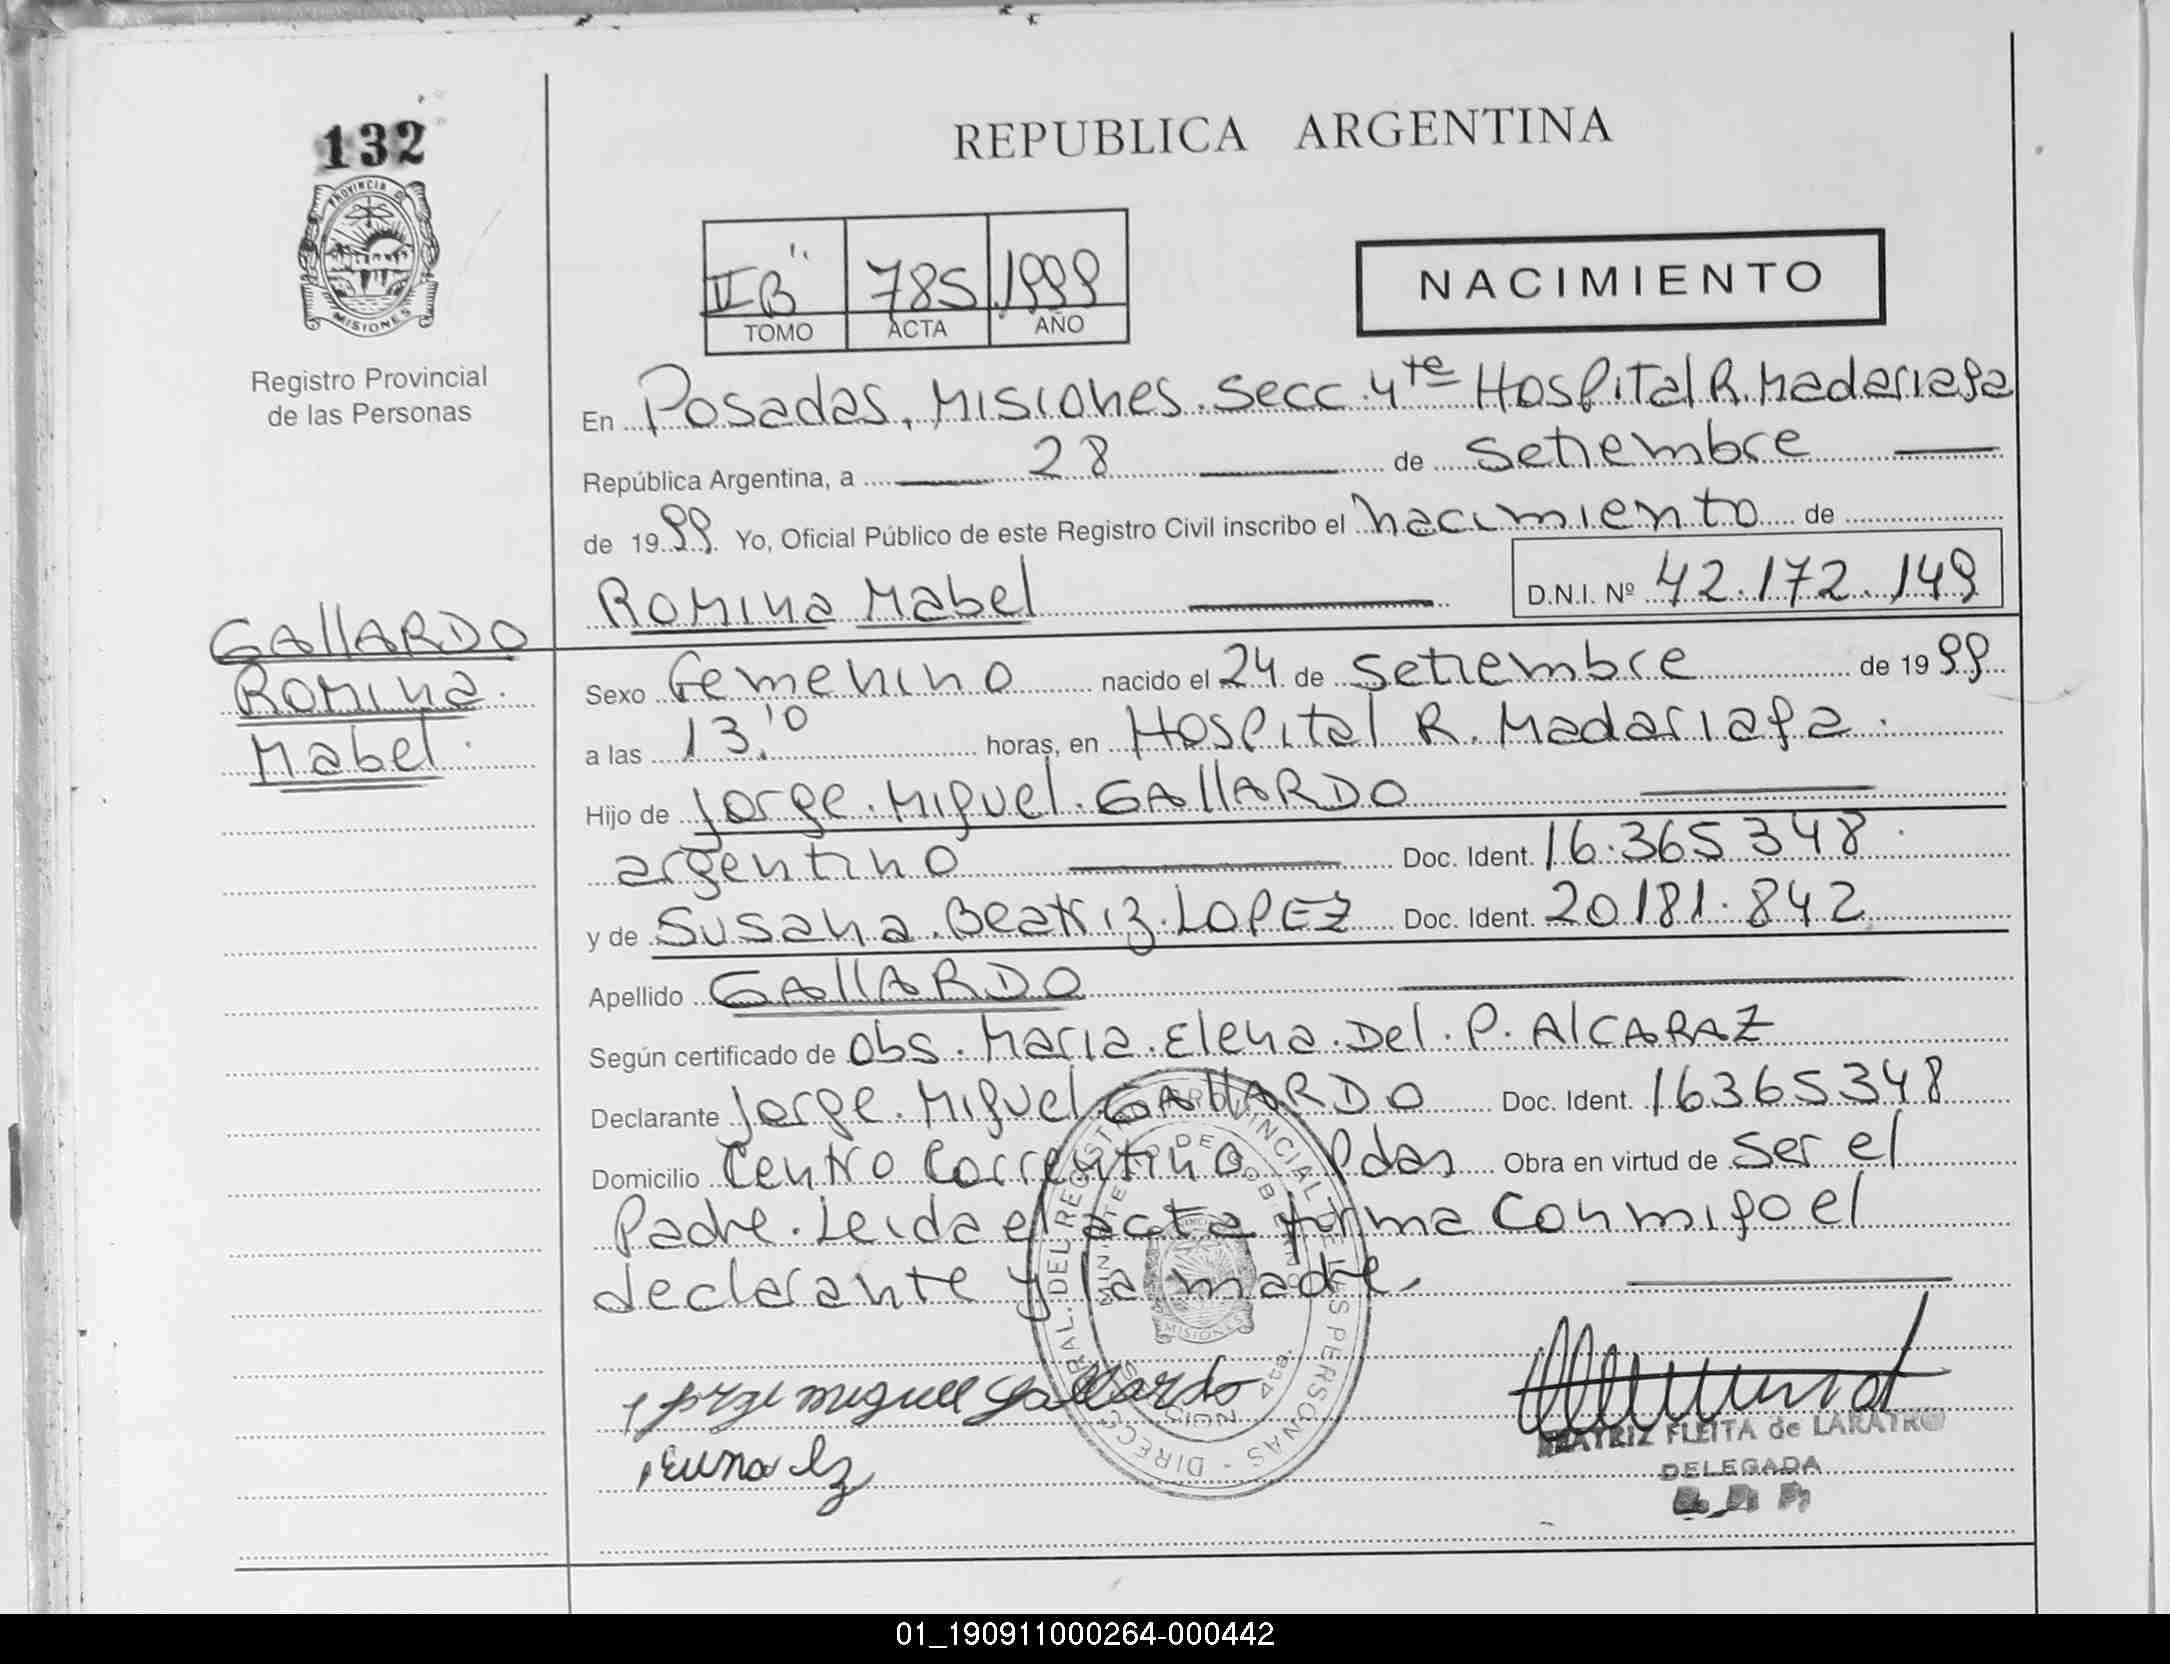 132
PROVINCIA DE
MISIONES
Registro Provincial
de las Personas
GAllARDO
Romina
Mabel
REPUBLICA ARGENTINA
II "B" 785 1999
TOMO ACTA AÑO
NACIMIENTO
En Posadas, Misiones. Secc. 4te Hospital R. Madariaga
República Argentina, a 28 de Setiembre
de 1999 Yo, Oficial Público de este Registro Civil inscribo el nacimiento de
Romina Mabel D.N.I. Nº 42.172.149
Sexo Femenino nacido el 24 de Setiembre de 1999
a las 13,10 horas, en Hospital R. Madariaga.
Hijo de Jorge Miguel GAllARDO
argentino Doc. Ident. 16.365348
y de Susana Beatriz LOPEZ Doc. Ident. 20181.842
Apellido GAllARDO
Según certificado de Obs. Maria Elena Del P. AlCARAZ
Declarante Jorge Miguel GAllARDO Doc. Ident. 16365348
Domicilio Centro Correntino Pdas Obra en virtud de ser el
Padre. Leida el acta firma conmigo el
declarante y la madre.
Jorge miguel gallardo
BEATRIZ FLEITA de LARATRO
DELEGADA
MISIONES
01_190911000264-000442